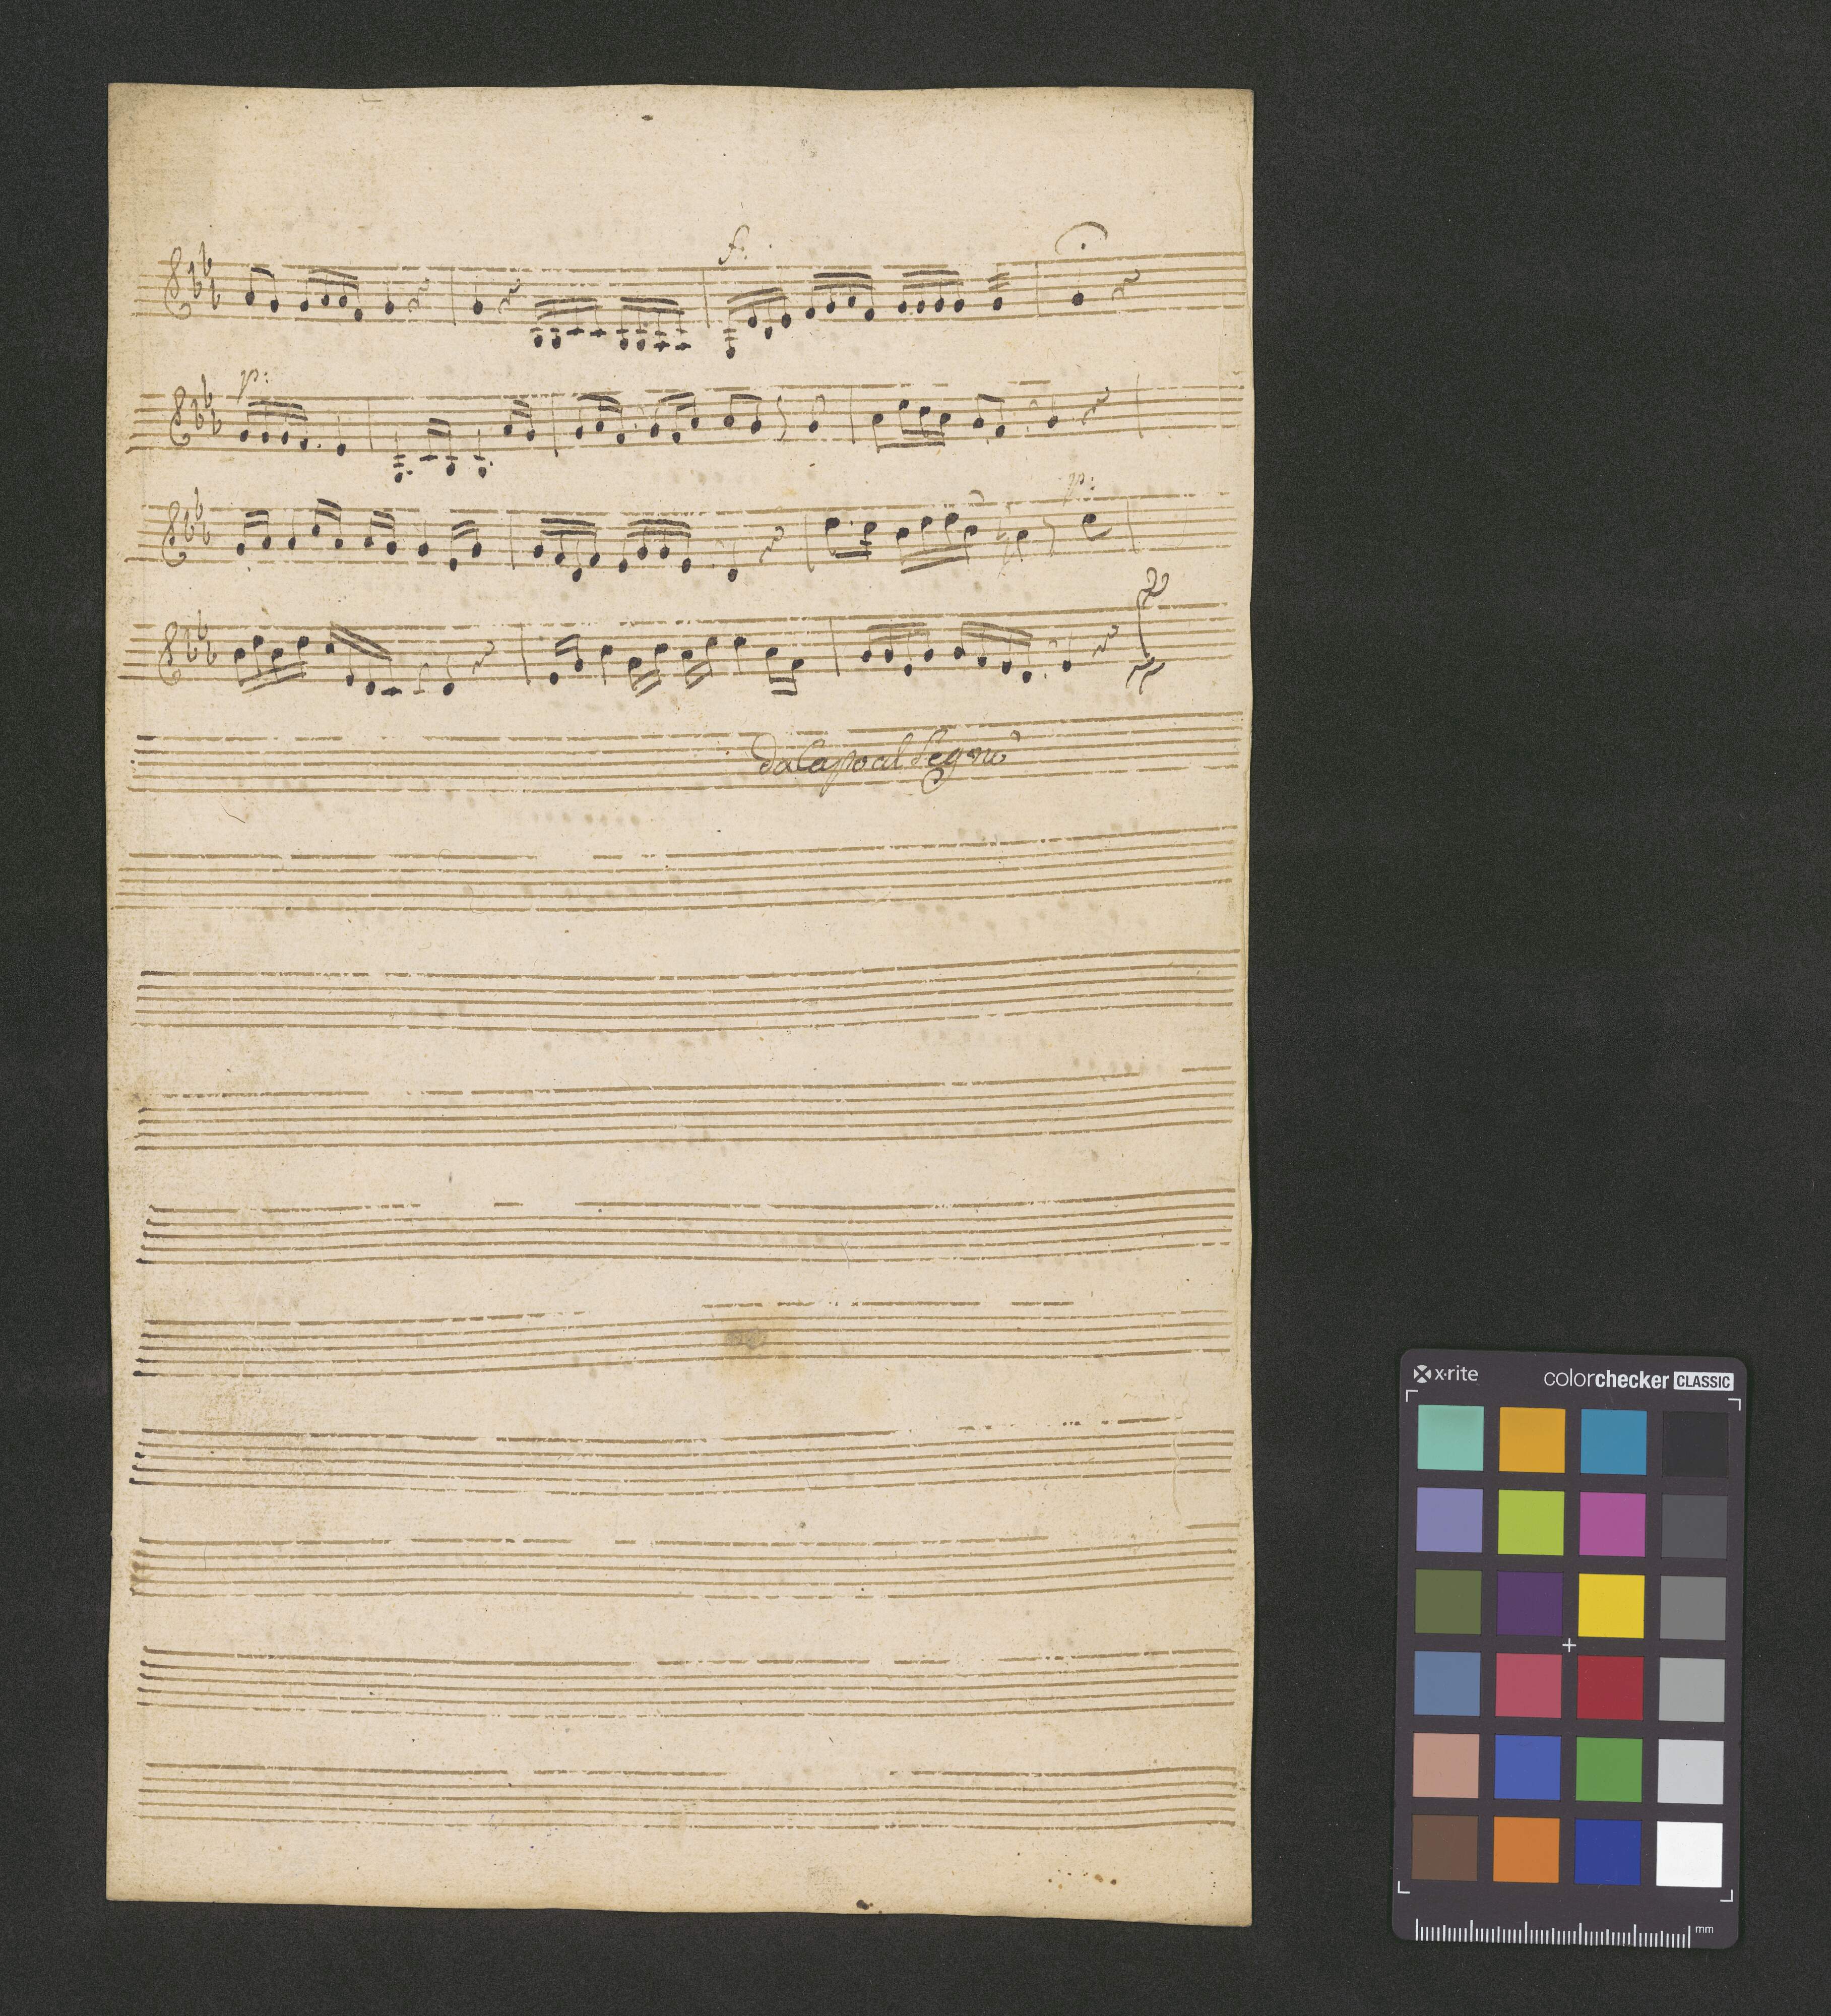 f.
p:
p:
Da Capo al Segno
x-rite
colorchecker CLASSIC
mm